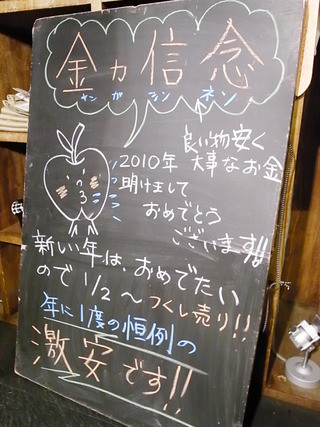 金カ信念
キンガシンネン
良い物安く
大事なお金
2010年
明けまして
おめでとう
ございます!!
新しい年は、おめでたい
ので1/2～つくし売り!!
年に1度の恒例の
激安です!!